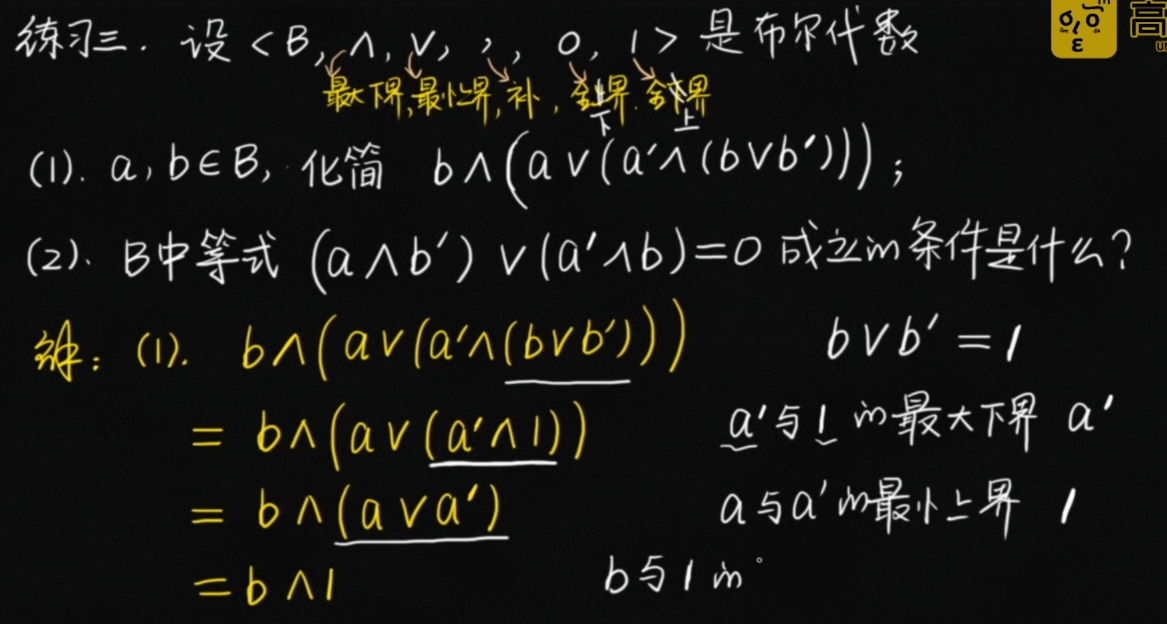 练习三. 设 <B, ∧, ∨, ', 0, 1> 是布尔代数
最大下界, 最小上界, 补, 全下界. 全上界
(1). a, b∈B, 化简 b∧(a∨(a'∧(b∨b')));
(2). B中等式 (a∧b')∨(a'∧b)=0 成立的条件是什么?
解: (1). b∧(a∨(a'∧(b∨b'))) b∨b' = 1
= b∧(a∨(a'∧1)) a'与1的最大下界 a'
= b∧(a∨a') a与a'的最小上界 1
= b∧1 b与1的